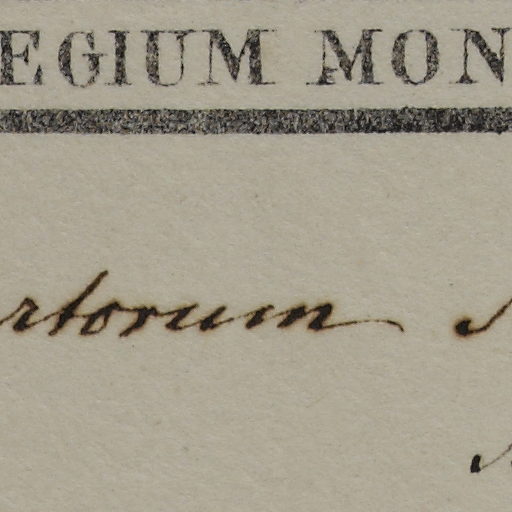 EGIUM MON
rtorum